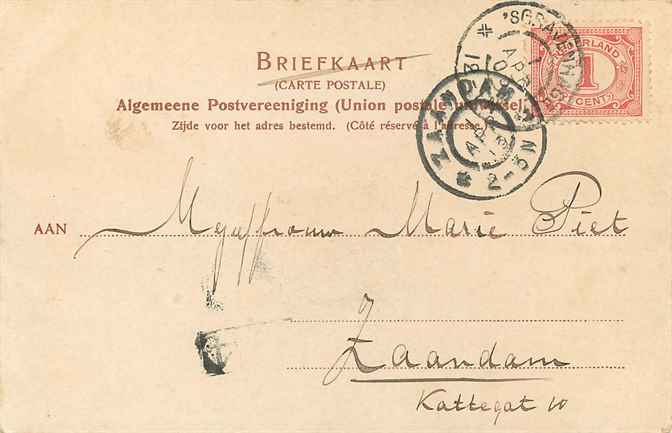 BRIEFKAART
(CARTE POSTALE)
Algemeene Postvereeniging (Union postale universelle)
Zijde voor het adres bestemd. (Côté réservé à l'adresse.)
'SGRAVENHAGE
APR
12
NEDERLAND
1
CENT
ZAANDAM
APR
2-3N
AAN Mejuffrouw Marie Piet
Zaandam
Kattegat 10